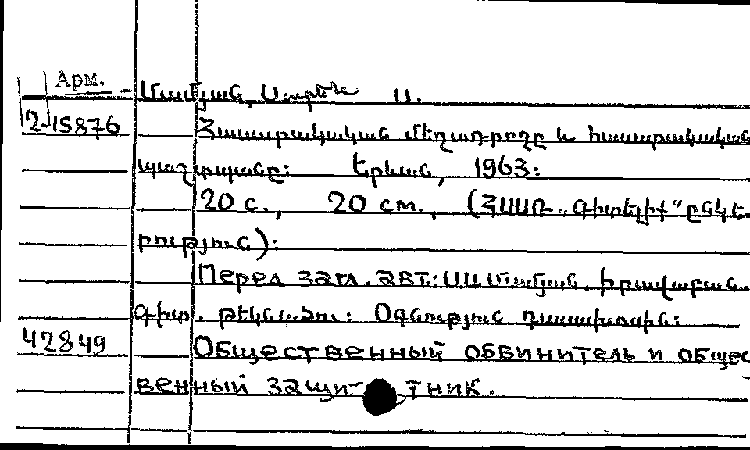 Арм.
2-15876
Հասարակական մեղադրողը և հասարակական
պաշտպանը: Երևան, 1963:
20 с., 20 ст., (ՀՍՍՌ „Գիտելիք" ընկե-
րություն):
Перед загл. авт.: իրավաբան.
գիտ. թեկնածու: Օգնություն դասախոսին:
42849
Общественный обвинитель и общест
венный защитник.